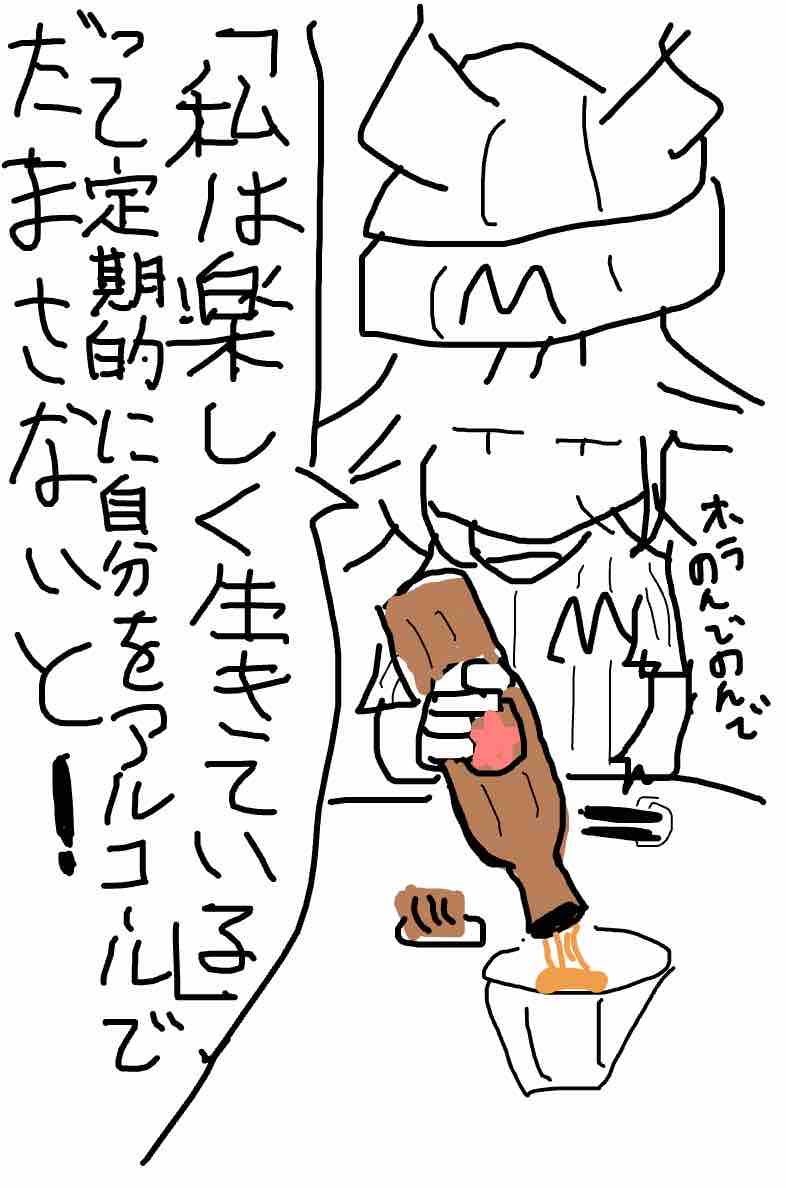 「私は楽しく生きている」
って定期的に自分をアルコールで
だまさないと!
ホラ
のんでのんで
M
M